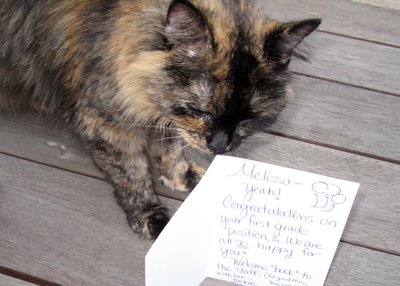 Melissa-
Yeah!
Congratulations on
your first grade
position. We are
all so happy for
you!
Welcome "back" to
the staff.